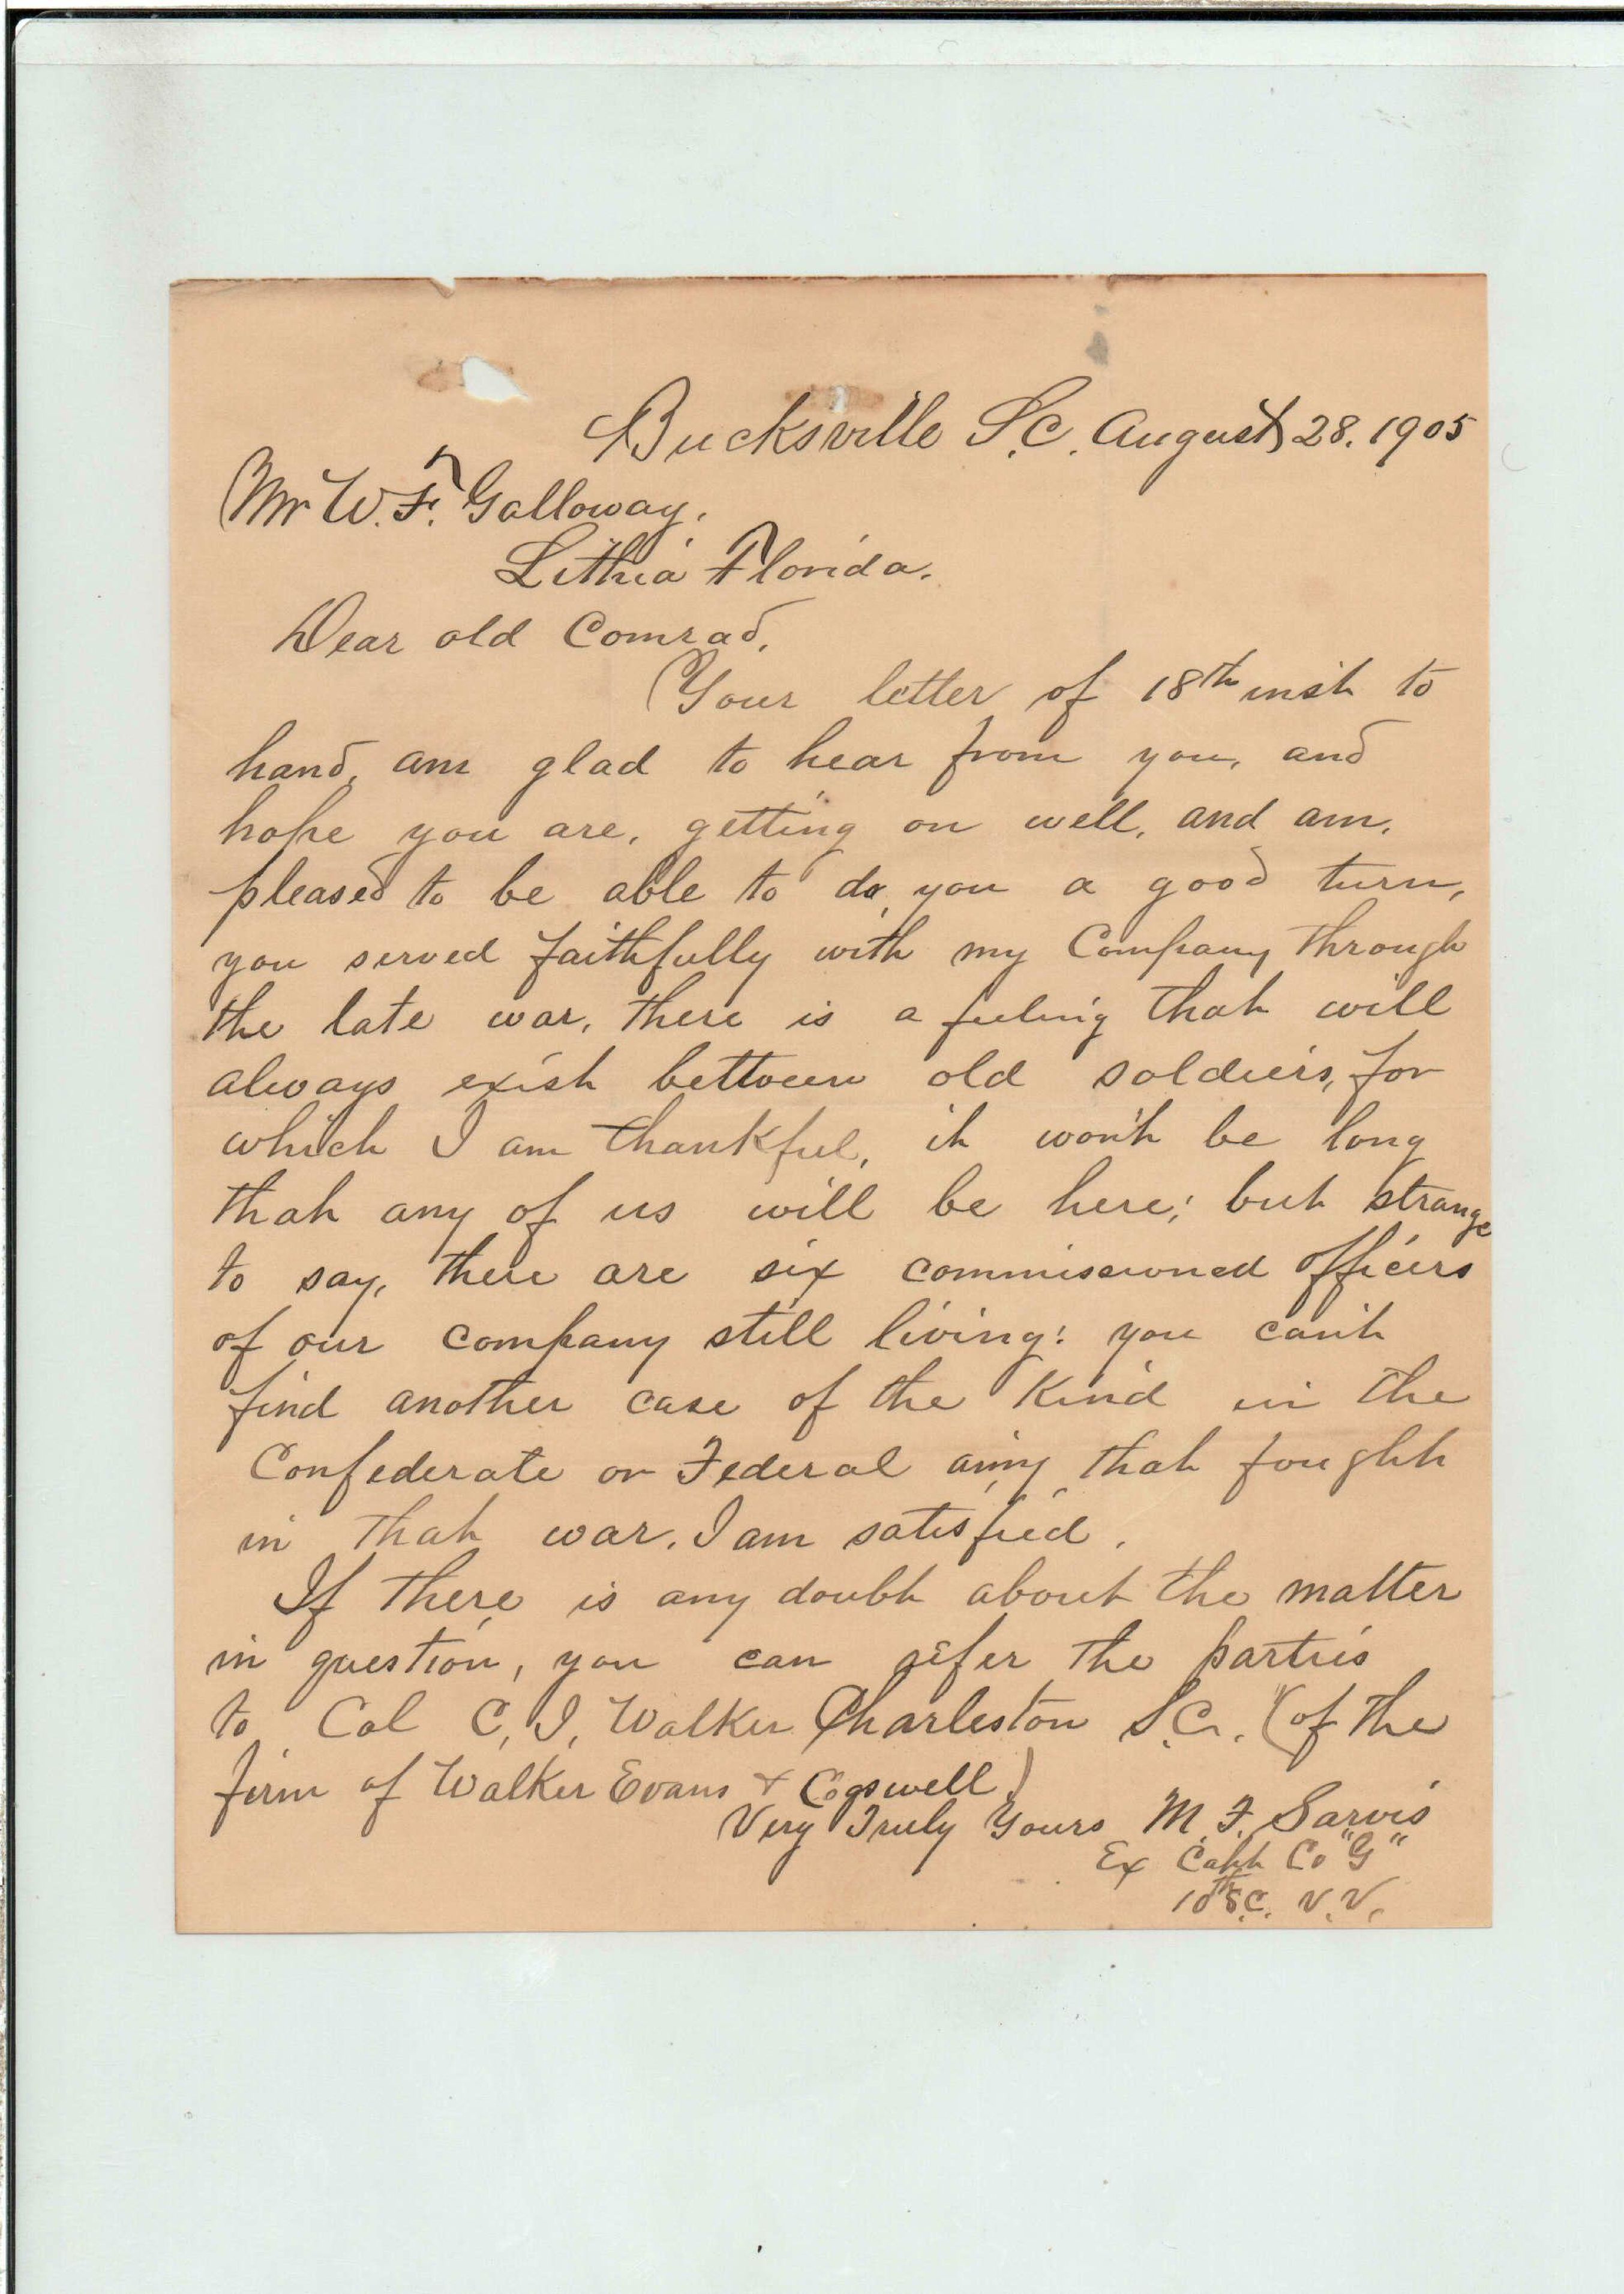 Bucksville S.C. August 28. 1905
Mr W. F. Galloway,
Lithia Florida.
Dear old Comrad,
Your letter of 18th inst to
hand, am glad to hear from you, and
hope you are, getting on well, and am,
pleased to be able to do, you a good turn,
you served faithfully with my Company through
the late war, there is a feeling that will
always exist bettween old soldiers, for
which I am thankful, it won't be long
that any of us will be here; but strange
to say, there are six commissioned officers
of our company still living: you can't
find another case of the Kind in the
Confederate or Federal army that fought
in that war. I am satisfied.
If there is any doubt about the matter
in question, you can refer the parties
to Col C, I, Walker Charleston S.C. (of the
firm of Walker Evans & Cogswell)
Very Truly Yours M. F. Sarvis
Ex Capt Co "G"
10th S.C. V.V.